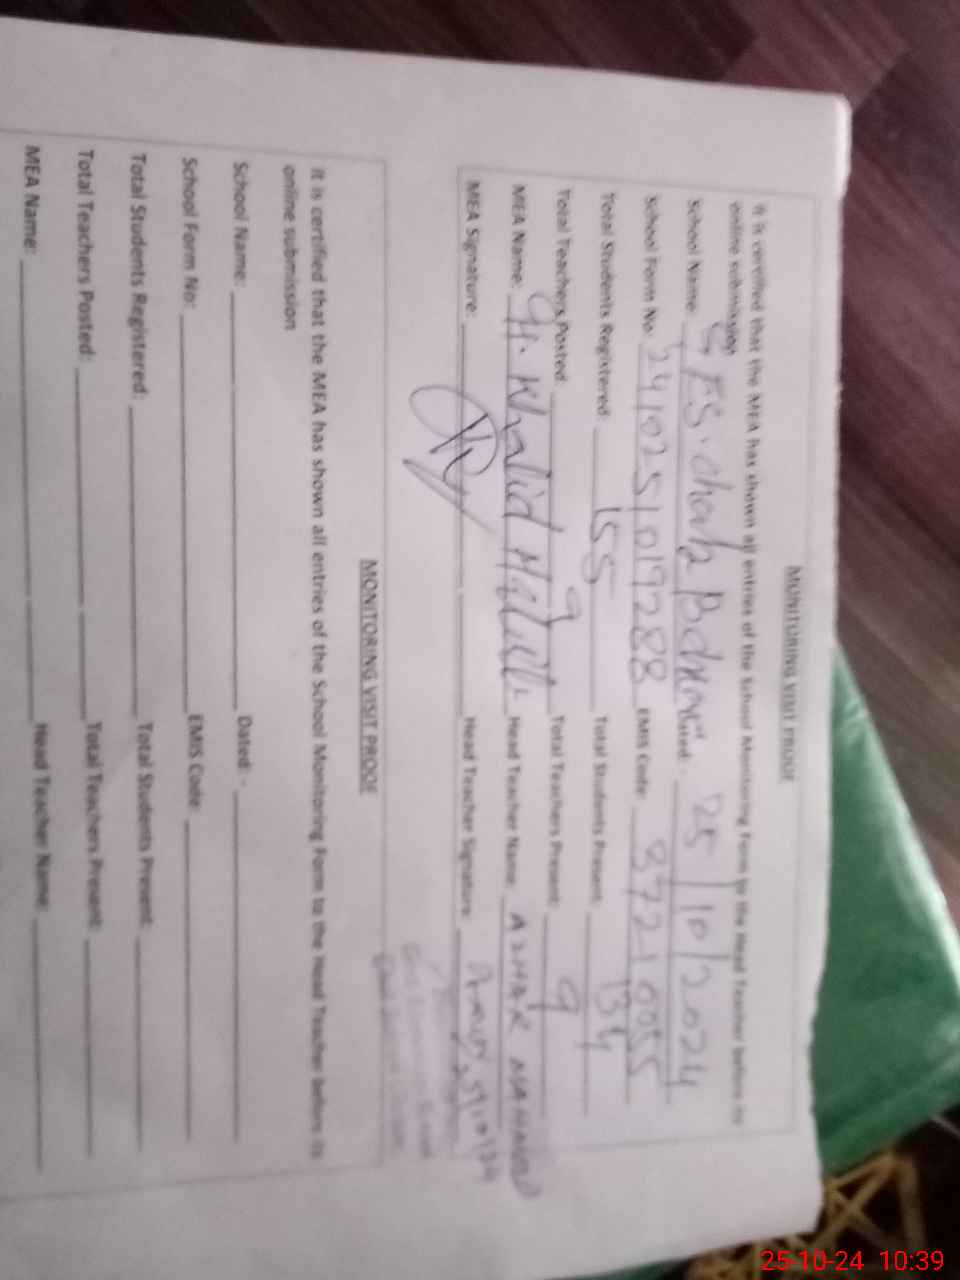 MONITORING VISIT PROOF
It is certified that the MEA has shown all entries of the School Monitoring Form to the Head Teacher before its
online submission
School Name: GES. Chak Dated: - 25/10/2024
School Form No: 241025101928 8 EMIS Code: 37210055
Total Students Registered: 155 Total Students Present: 134
Total Teachers Posted: 9 Total Teachers Present: 9
MEA Name: Khalid Head Teacher Name: AZHAR MAHMOOD
MEA Signature: Head Teacher Signature
MONITORING VISIT PROOF
It is certified that the MEA has shown all entries of the School Monitoring Form to the Head Teacher before its
online submission
School Name: Dated: -
School Form No: EMIS Code:
Total Students Registered: Total Students Present:
Total Teachers Posted: Total Teachers Present:
MEA Name: Head Teacher Name:
25-10-24 10:39